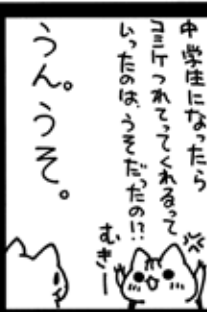 中学生になったら
コミケつれてってくれるって
いったのは、うそだったの!?
むきー
うん。うそ。